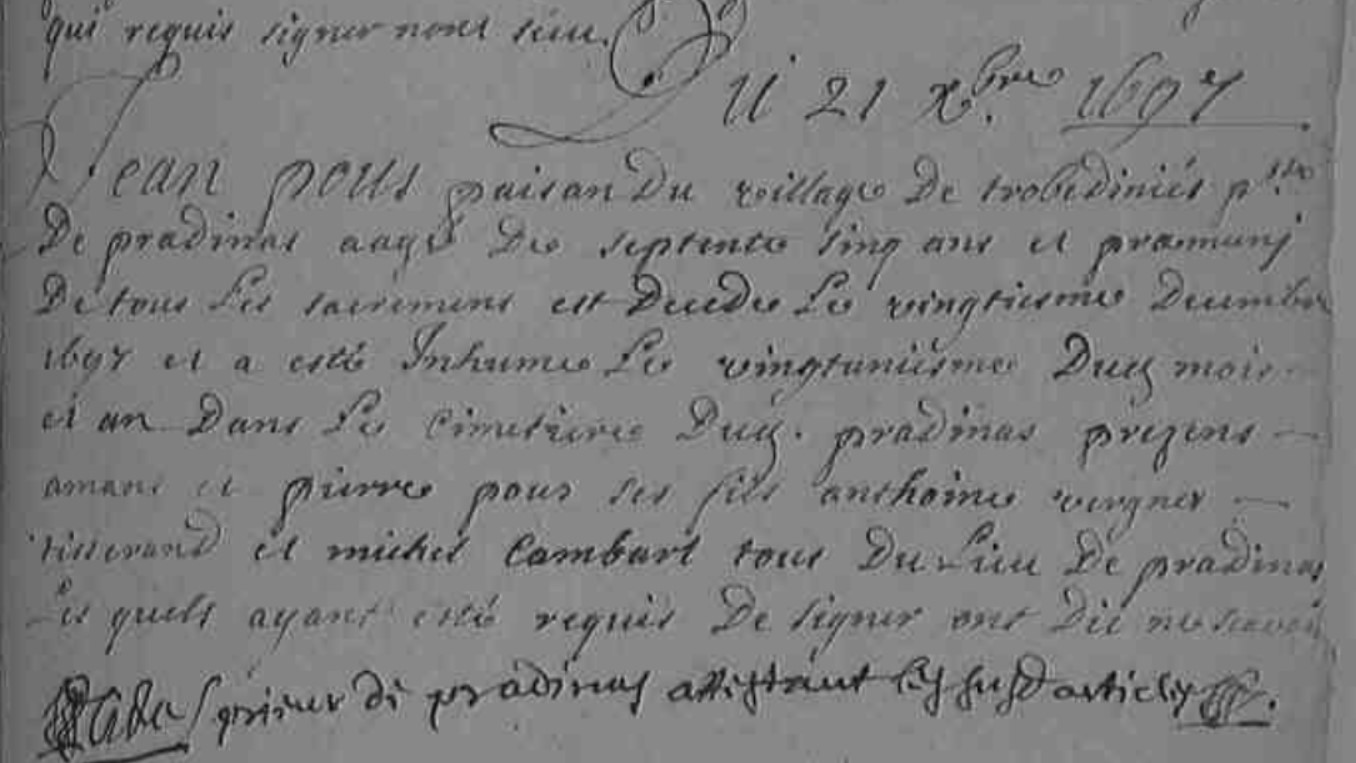 qui requis signer nont sceu.
Du 21 xbre 1697
Jean pous paisan Du village De trobediniés psse
De pradinas aagé De septente sinq ans et præmunj
De tous Les sacremens est Decede Le vingtiesme Decembre
1697 et a esté Inhume Le vingtuniesme Dud mois
et an Dans Le Cimetiere Dud. pradinas prezens
amans et pierre pous ses fils anthoine vergnes
tisserand et michel Combart tous Du Lieu De pradinas
Les quels ayant esté requis De signer ont Dit ne scavoir
prieur de pradinas attestant les susd articles